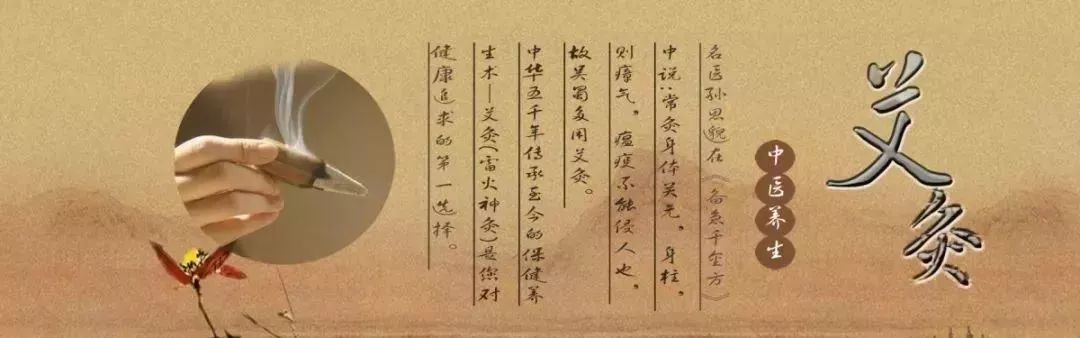 艾灸
中医养生
名医孙思邈在《备急千金方》
中说：常灸身体关元，身柱，
则瘴气，瘟疫不能侵人也，
故吴蜀多用艾灸。
中华五千年传承至今的保健养
生术—艾灸（雷火神灸）是您对
健康追求的第一选择。